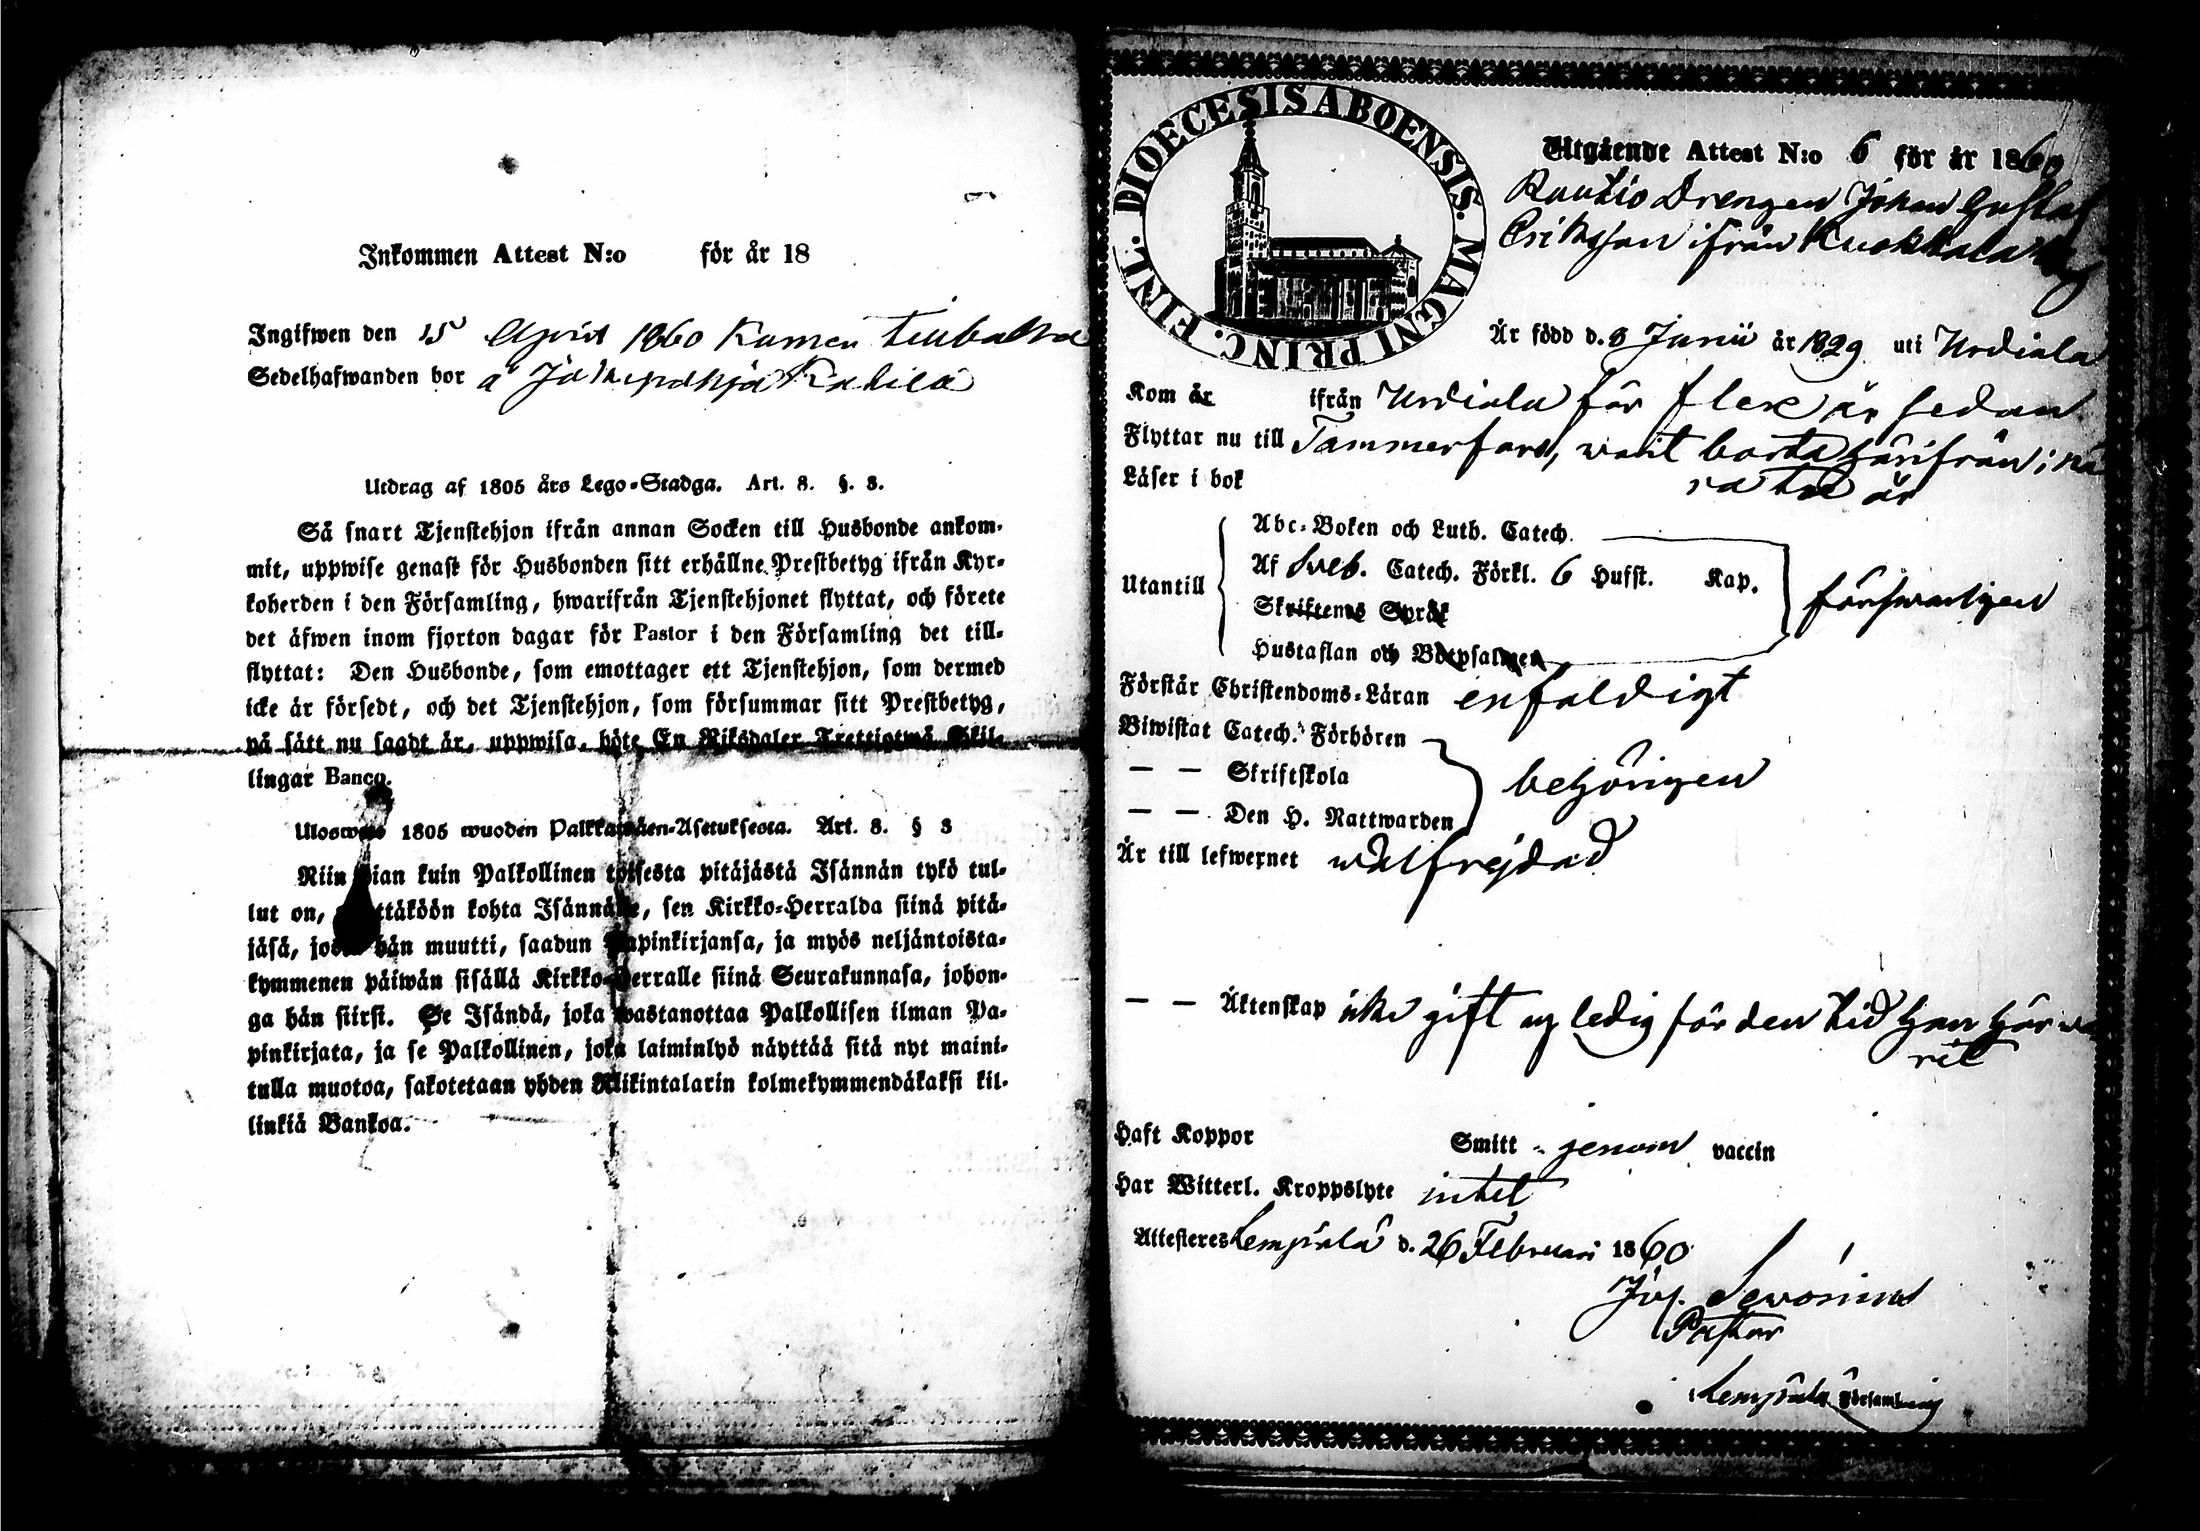 Inkommen Attest N:o för år 18
Ingifwen den 15 April 1860 Kumen
Sedelhafwanden bor å
Utdrag af 1805 års Lego-Stadga. Art. 8. §. 3.
Så snart Tjenstehjon ifrån annan Socken till Husbonde ankom-
mit, uppwise genast för Husbonden sitt erhållne Prestbetyg ifrån Kyr-
koherden i den Församling, hwarifrån Tjenstehjonet flyttat, och förete
det äfwen inom fjorton dagar för Pastor i den Församling det till-
flyttat: Den Husbonde, som emottager ett Tjenstehjon, som dermed
icke är försedt, och det Tjenstehjon, som försummar sitt Prestbetyg,
på sätt nu sagdt är, uppwisa, böte En Riksdaler Trettiotwå Skil-
lingar Banco.
Ulosweto 1805 wuoden Palkkawäen-Asetuksesta. Art. 8. § 3
Niin pian kuin Palkollinen toisesta pitäjästä Isännän tykö tul-
lut on, näyttäköön kohta Isännälle, sen Kirkko-Herralda siinä pitä-
jäsä, josta hän muutti, saadun Papinkirjansa, ja myös neljäntoista-
kymmenen päiwän sisällä Kirkko-Herralle siinä Seurakunnasa, johon-
ga hän siirsi. Se Isändä, joka wastanottaa Palkollisen ilman Pa-
pinkirjata, ja se Palkollinen, joka laiminlyö näyttää sitä nyt maini-
tulla muotoa, sakotetaan yhden Riikintalarin kolmekymmendäkaksi kil-
linkiä Bankoa.
DIOECESIS ABOENSIS. MAGNI PRINC. FINL.
Utgående Attest N:o 6 för år 1860
Ruutio Drengen Johan Gustaf
Eriksson ifrån Kuokkala
Är född d. 9 Junii år 1829 uti Urdiala
Kom år ifrån Urdiala för flere år sedan
Flyttar nu till Tammerfors, warit borta härifrån i nå
Läser i bok ra tre år
Utantill
Abc-Boken och Luth. Catech.
Af Sveb. Catech. Förkl. 6 Hufst. Kap.
Skriftenes Språk
Hustaflan och Botpsalmen
förswarligen
Förstår Christendoms-Läran enfaldigt
Biwistat Catech. Förhören
— — Skriftskola
— — Den H. Nattwarden
behörigen
Är till lefwernet wälfrejdad
— — Äktenskap icke gift og ledig för den tid han här wa
rit
Haft Koppor Smitt- genom vaccin
Har Witterl. Kroppslyte intet
Attesteres Lempälä d. 26 Februari 1860
Jos. Sevonius
Pastor
Lempälä Församling